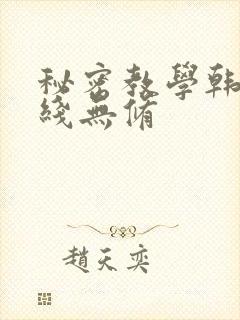 秘密教學韩
綫無脩
趙天奕